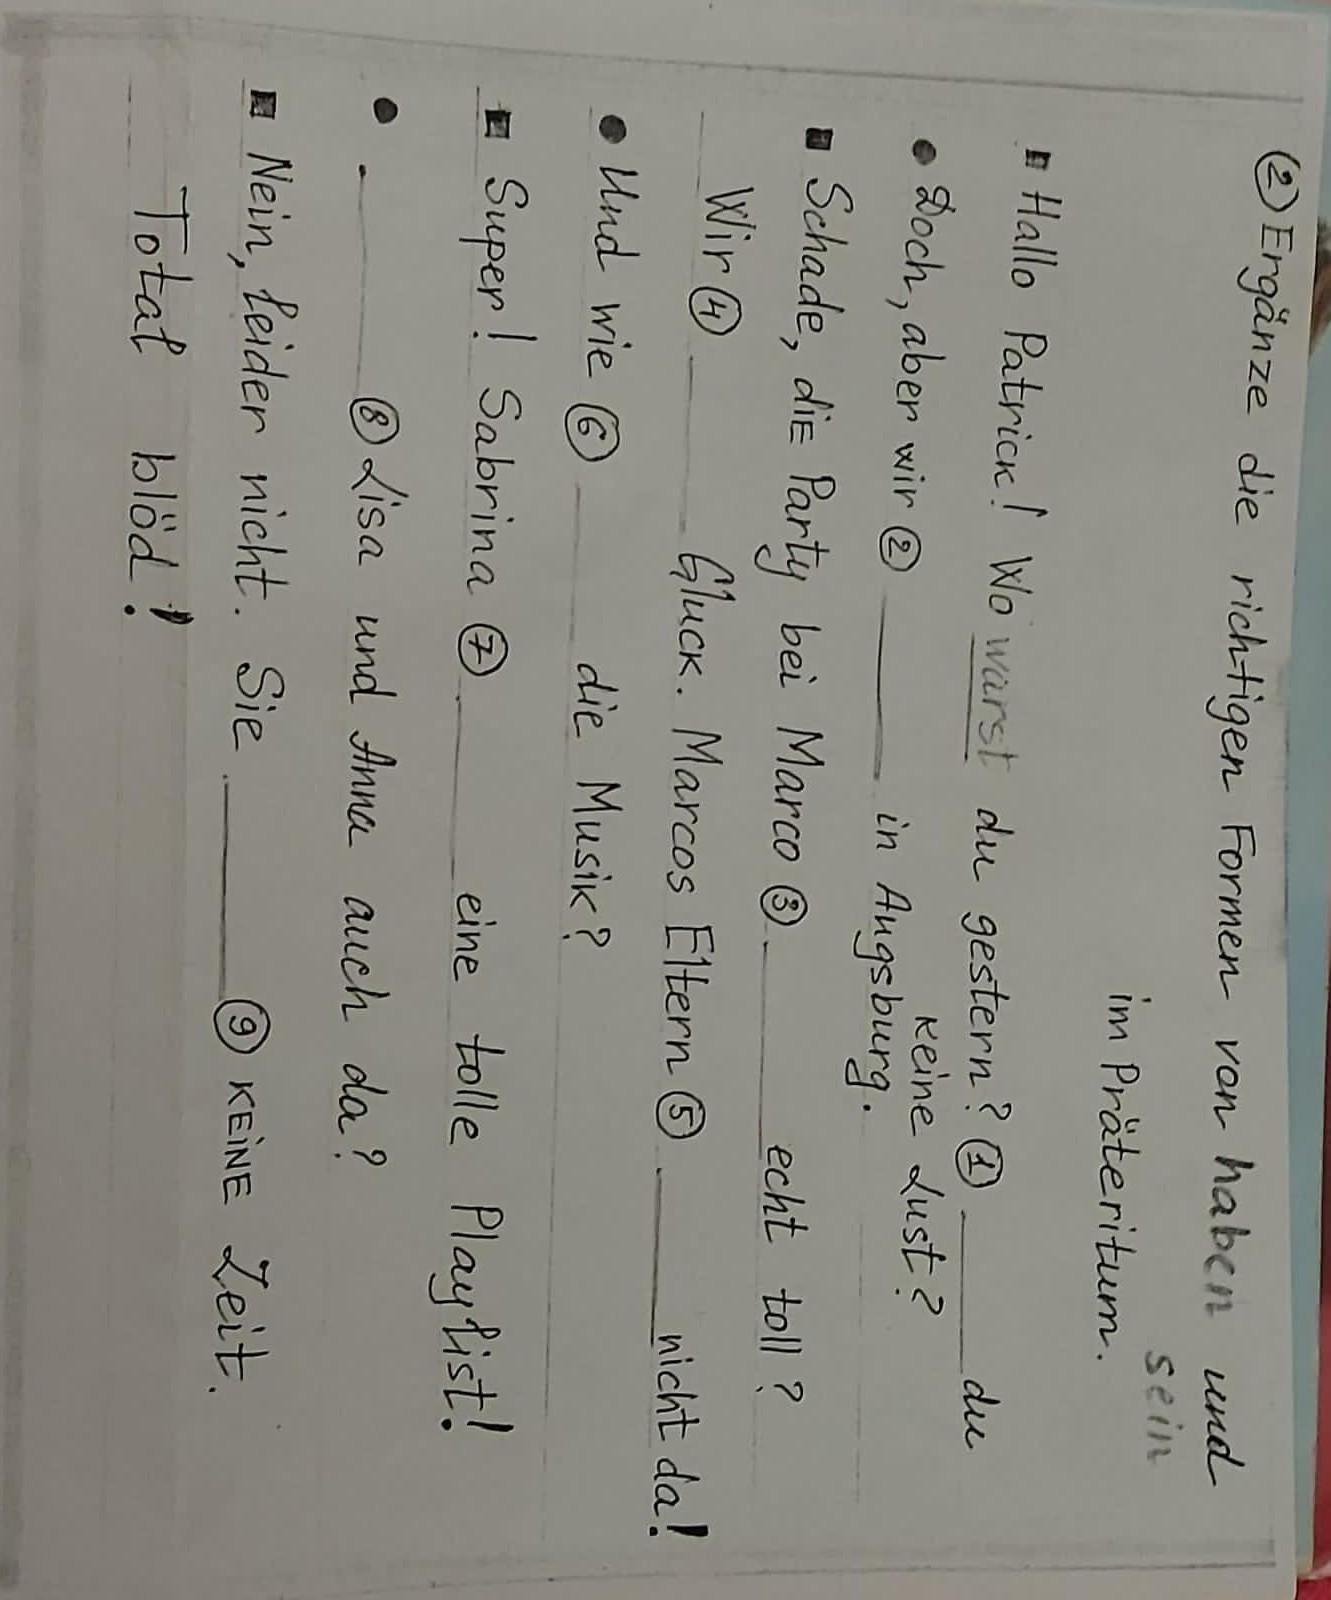 ② Ergänze die richtigen Formen von haben und
sein
im Präteritum.
▪ Hallo Patrick! Wo warst du gestern? ① ____ du
keine Lust?
● Doch, aber wir ② ____ in Augsburg.
▪ Schade, die Party bei Marco ③ ____ echt toll?
Wir ④ ____ Gluck. Marcos Eltern ⑤ ____ nicht da!
● Und wie ⑥ ____ die Musik?
▪ Super! Sabrina ⑦ ____ eine tolle Playlist!
● ____ ⑧ Lisa und Anna auch da?
▪ Nein, leider nicht. Sie ____ ⑨ KEINE Zeit.
Total blöd!